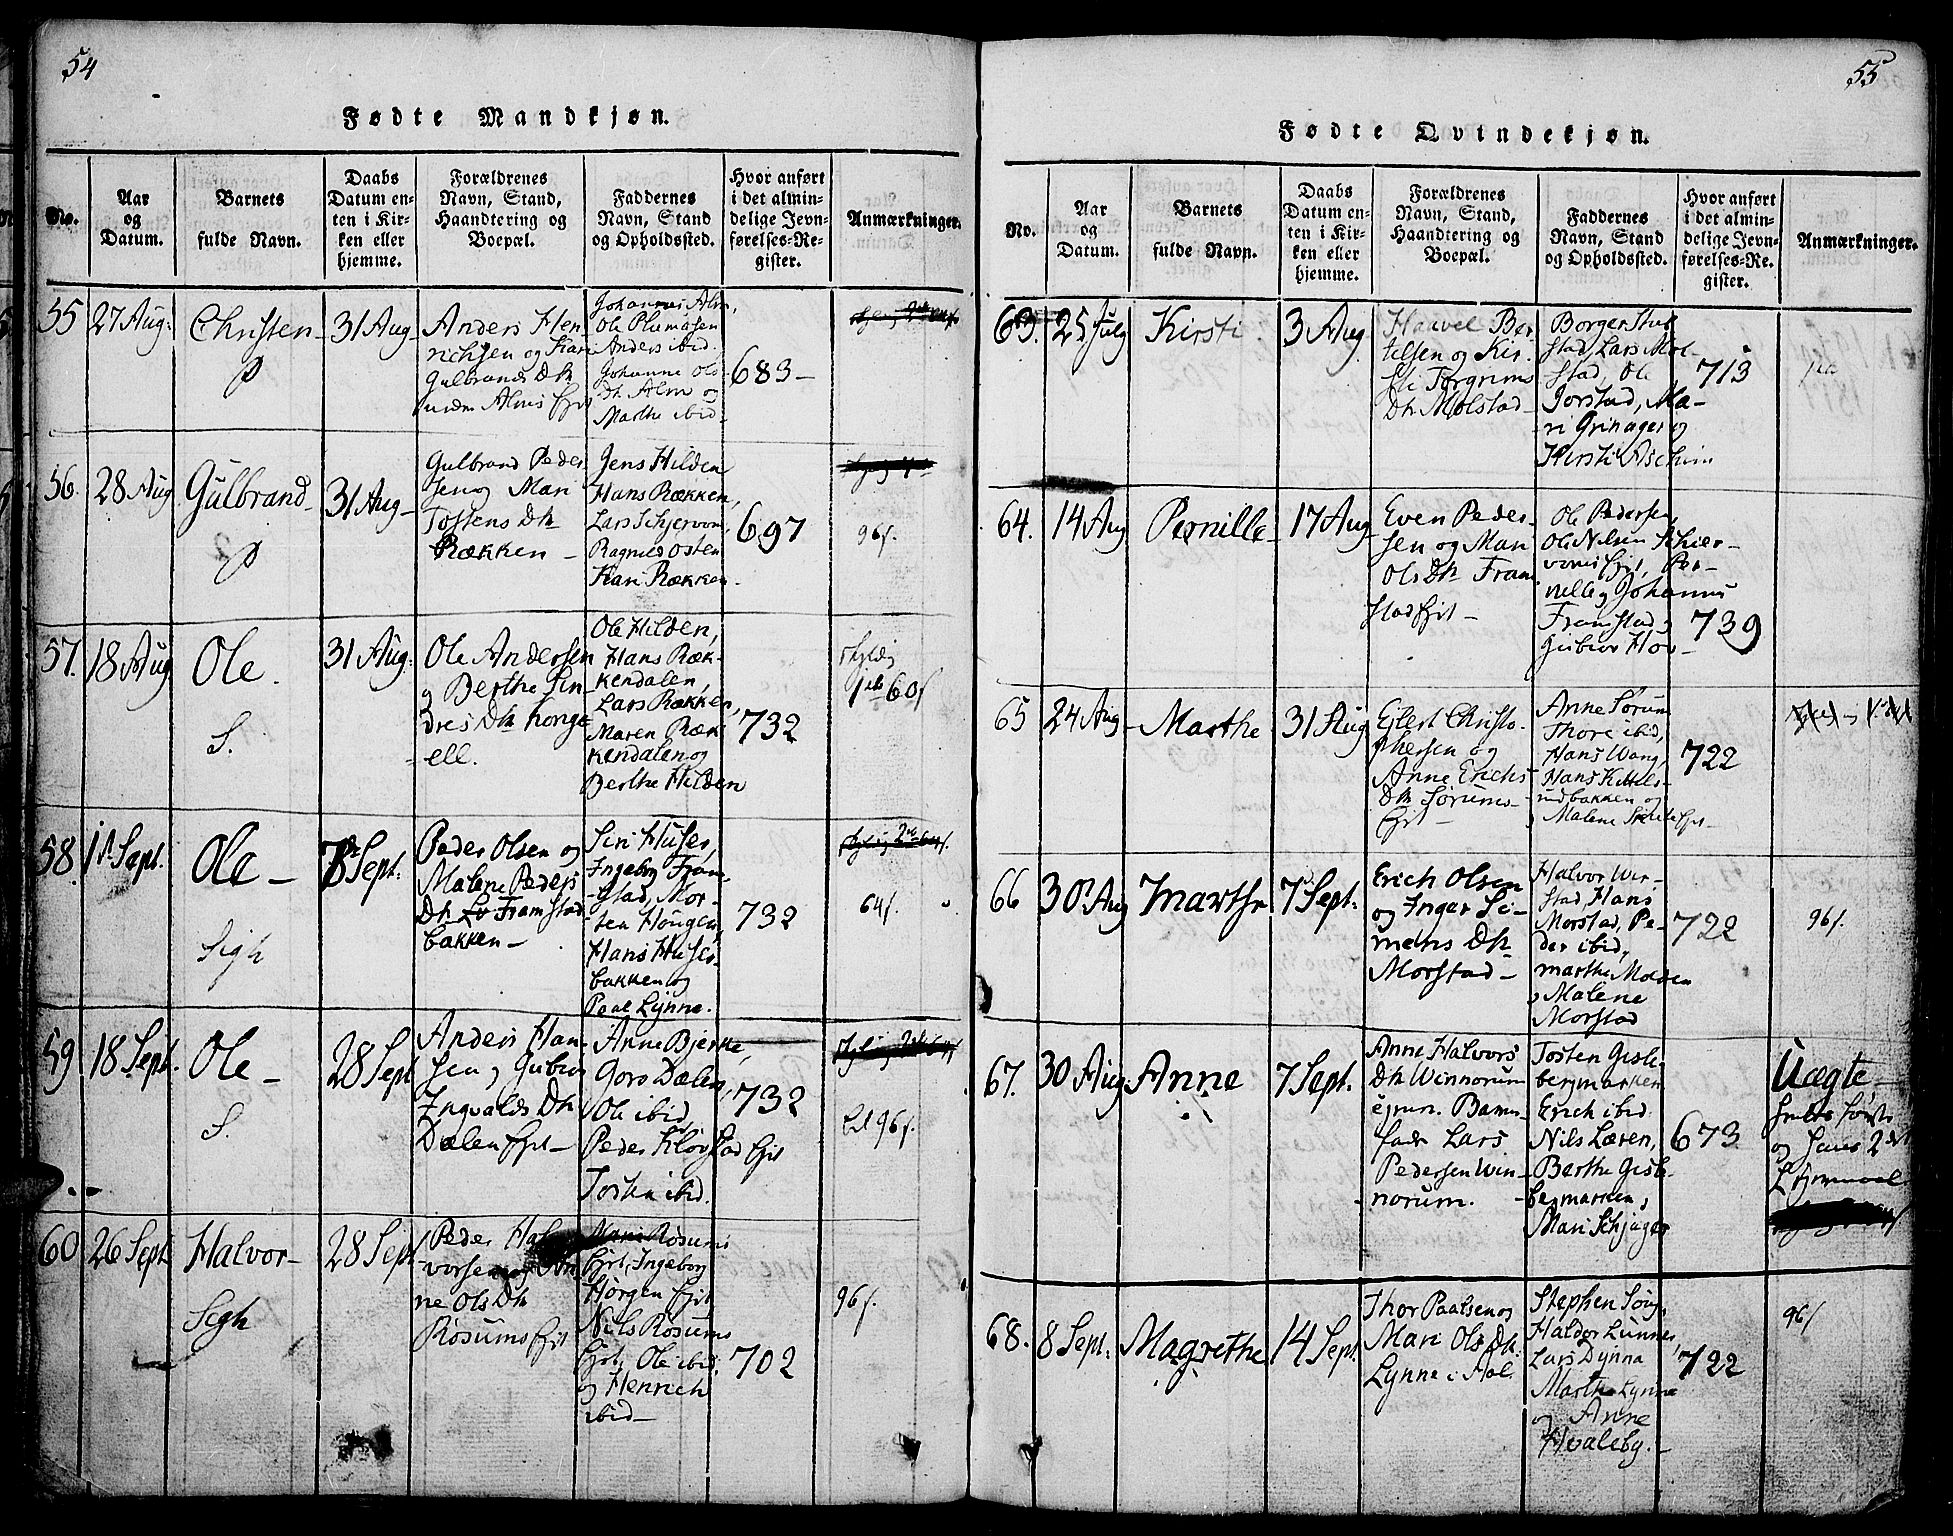 54
Fødte Mandkjøn.
No.
Aar
og
Datum.
Barnets
fulde Navn.
Daabs
Datum en-
ten i Kir-
ken eller
hjemme.
Forældrenes
Navn, Stand,
Haandtering og
Boepæl.
Faddernes
Navn, Stand
og Opholdssted.
Hvor anført
i det almin-
delige Jevn-
førelses-Re-
gister.
Anmærkninger.
55
27 Aug:
Christen
31 Aug
Anders Hen
richsen og Kari
Gulbrands Dtr
Alms Ejet
Johannes Alm,
Ole
Anders ibid.
Johanne Ols
Dtr Alm og
Marthe ibid.
683
56.
28 Aug
Gulbrand
31 Aug
Gulbrand Peder
sen og Mari
Tostens Dtr
Rækken
Jens Hilden
Hans Rækken,
Lars Schjervom
Ragnild Osten
Kari Rækken.
697
96s.
57.
18 Aug
Ole.
S.
31 Aug:
Ole Andersen
og Berthe Sin
dres Dtr
ell.
Ole Hilden,
Hans Ræk-
kendalen,
Lars Rækken,
Maren Ræk
kendalen og
Berthe Hilden
732
skyldig
60s
58.
1 Sept.
Ole
Sigh
7 Sept.
Peder Olsen og
Malene Peders
Dtr Framstad
bakken
Siri Huser,
Ingeborg Fram
stad, Mor-
ten Hougen,
Hans Huser-
bakken og
Paal Lynne.
732
64s.
59
18 Sept.
Ole
S.
28 Sept
Anders Han
sen og Gubiør
Ingvalds Dtr
Dælen Ejet
Anne Bjerke,
Goro Dælen,
Ole ibid
Peder Klovstad Ejet
Tosten ibid.
732
96s.
60
26 Sept
Halvor
Sigh
28 Sept
Peder Hal
vorsen og An
ne Ols Dtr
Røsums Ejet
Mari Røsums
Ejet, Ingeborg
Hørgen Ejet
Nils Røsums
Ejet, Ole ibid
og Henrich
ibid
702
96s.
55
Fødte Qvindekjøn.
No.
Aar
og
Datum.
Barnets
fulde Navn.
Daabs
Datum en-
ten i Kir-
ken eller
hjemme.
Forældrenes
Navn, Stand,
Haandtering og
Boepæl.
Faddernes
Navn, Stand
og Opholdssted.
Hvor anført
i det almin-
delige Jevn-
førelses-Re-
gister.
Anmærkninger.
63.
25 July
Kirsti
3 Aug
Haavel Ber
telsen og Kir-
sti Torgrims
Dtr Molstad
Borger Stub
stad, Lars Mol-
stad, Ole
Jorstad, Ma-
ri Grinager og
Kirsti Aschim
713
64.
14 Aug
Pernille
17 Aug
Even Peder-
sen og Mari
Ols Dtr Fram
stad Ejet
Ole Pedersen,
Ole Nilsen Schier-
voms Ejet, Per-
nille og Johannes
Framstad og
Gubiør Hov
739
65
24 Aug
Marthe
31 Aug
Eilert Christo-
phersen og
Anne Erichs
Dtr Sørums
Ejet
Anne Sørum
Thore ibid,
Hans Wang,
Hans Kittels-
rudbakken og
Malene Ejet
722
66
30 Aug
Marthe
7 Sept.
Erich Olsen
og Inger Si-
mens Dtr
Morstad
Halvor Wir-
stad, Hans
Morstad, Pe-
der ibid,
Marthe Molden
og Malene
Morstad
722
96s.
67.
30 Aug
Anne
7 Sept.
Anne Halvors
Dtr Winnorum
ejun. Barne-
fader Lars
Pedersen Win-
norum.
Tosten Gisle-
bergmarken
Erich ibid
Nils Læren,
Berthe Gisle-
bergmarken,
Mari Schjager
673
Uægte
første
og hans 2det
68.
8 Sept.
Magrethe
14 Sept.
Thor Paalsen og
Mari Ols Dtr
Lynne i Aal
Stephen
Halder Lunner,
Lars Dynna
Marthe Lynne
og Anne
Hvaleby.
722
96s